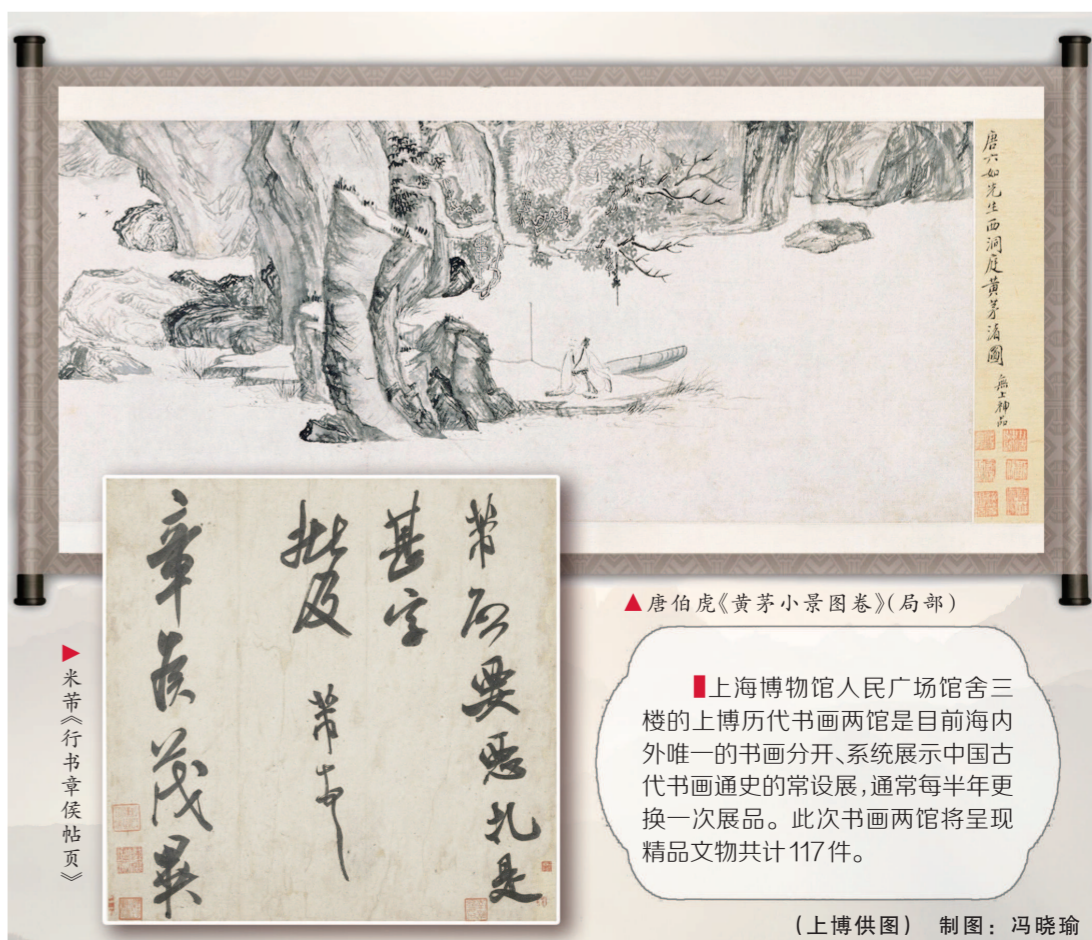 唐六如先生西洞庭黄茅渚圖
無上神品
▲唐伯虎《黄茅小景图卷》(局部)
▶米芾《行书章侯帖页》
芾啟要惡札是
甚字
批及 芾頓首
章侯茂異
上海博物馆人民广场馆舍三
楼的上博历代书画两馆是目前海内
外唯一的书画分开、系统展示中国古
代书画通史的常设展,通常每半年更
换一次展品。此次书画两馆将呈现
精品文物共计117件。
(上博供图) 制图:冯晓瑜